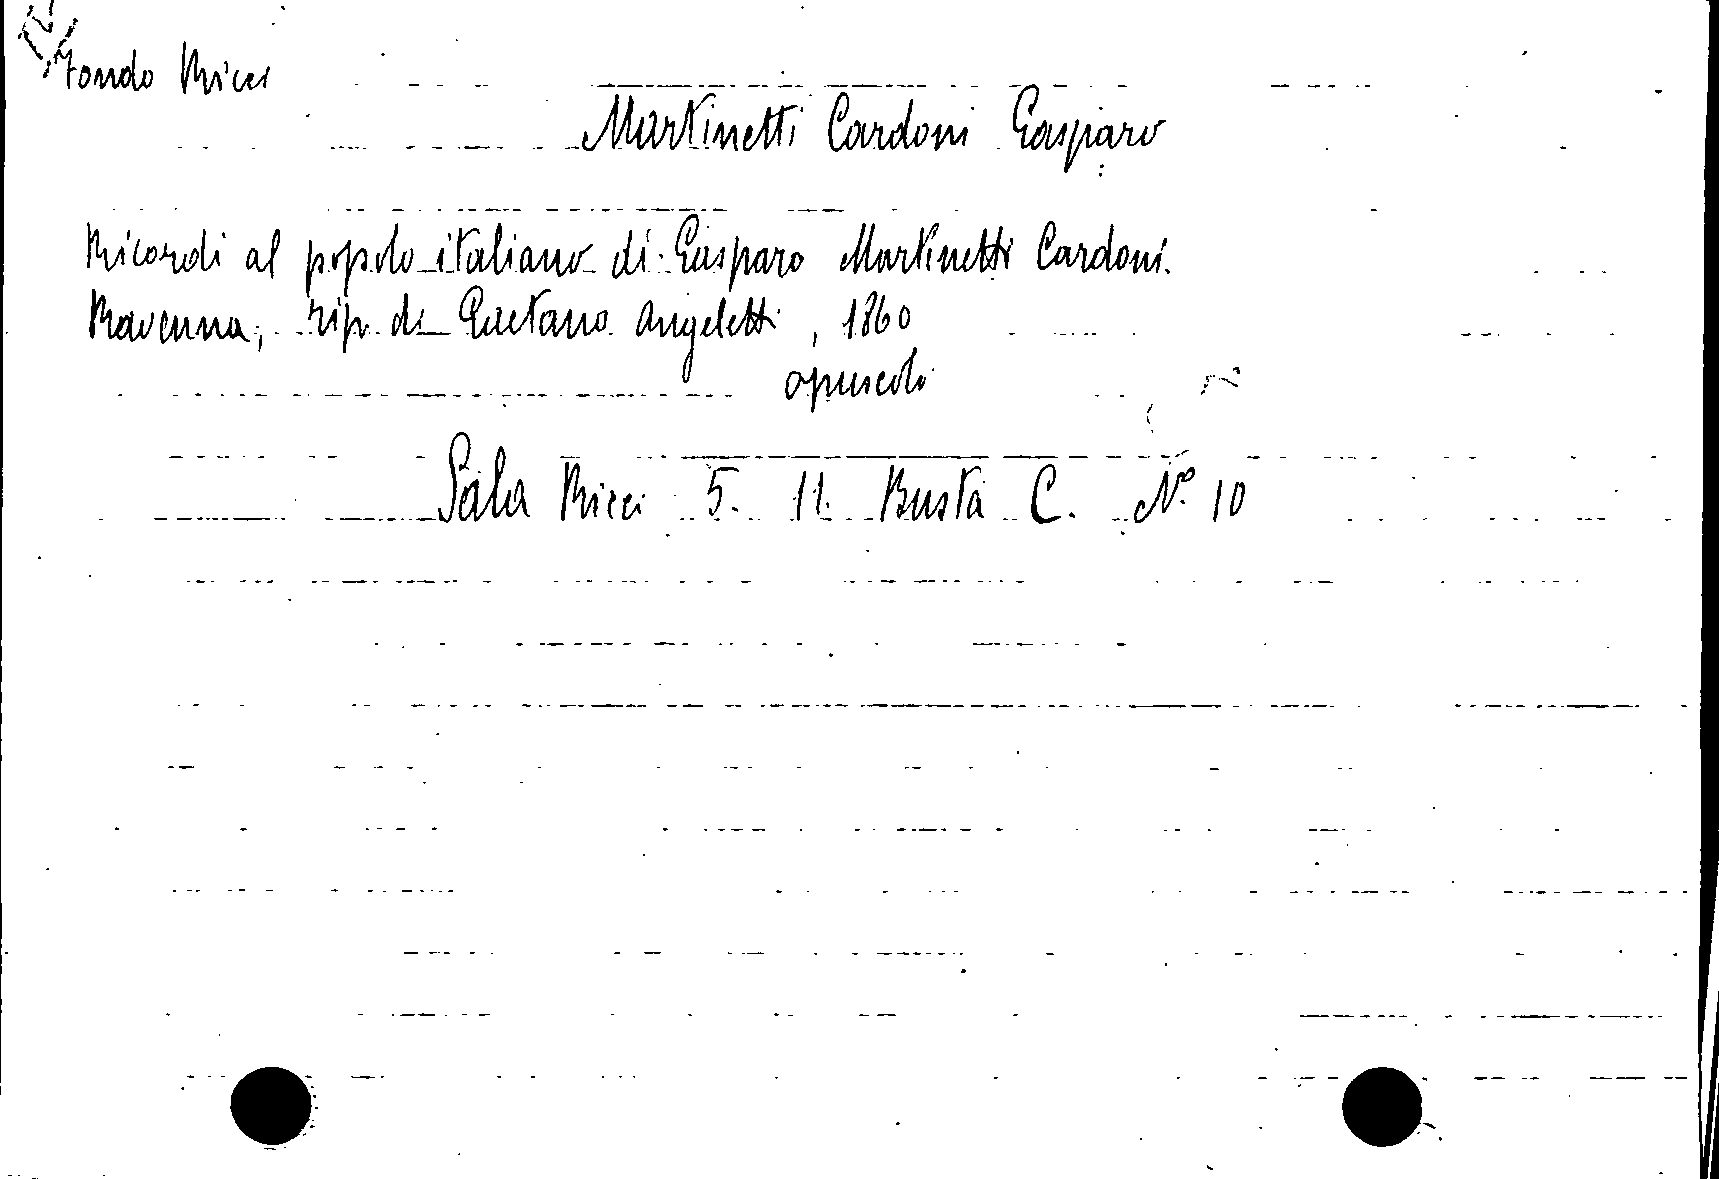 Fondo Ricci
Martinetti Cardoni Gasparo
Ricordi al popolo italiano di Gasparo Martinetti Cardoni.
Ravenna, tip. di Gaetano Angeletti, 1860
opuscolo
Sala Ricci 5. 11. Busta C. N.º 10